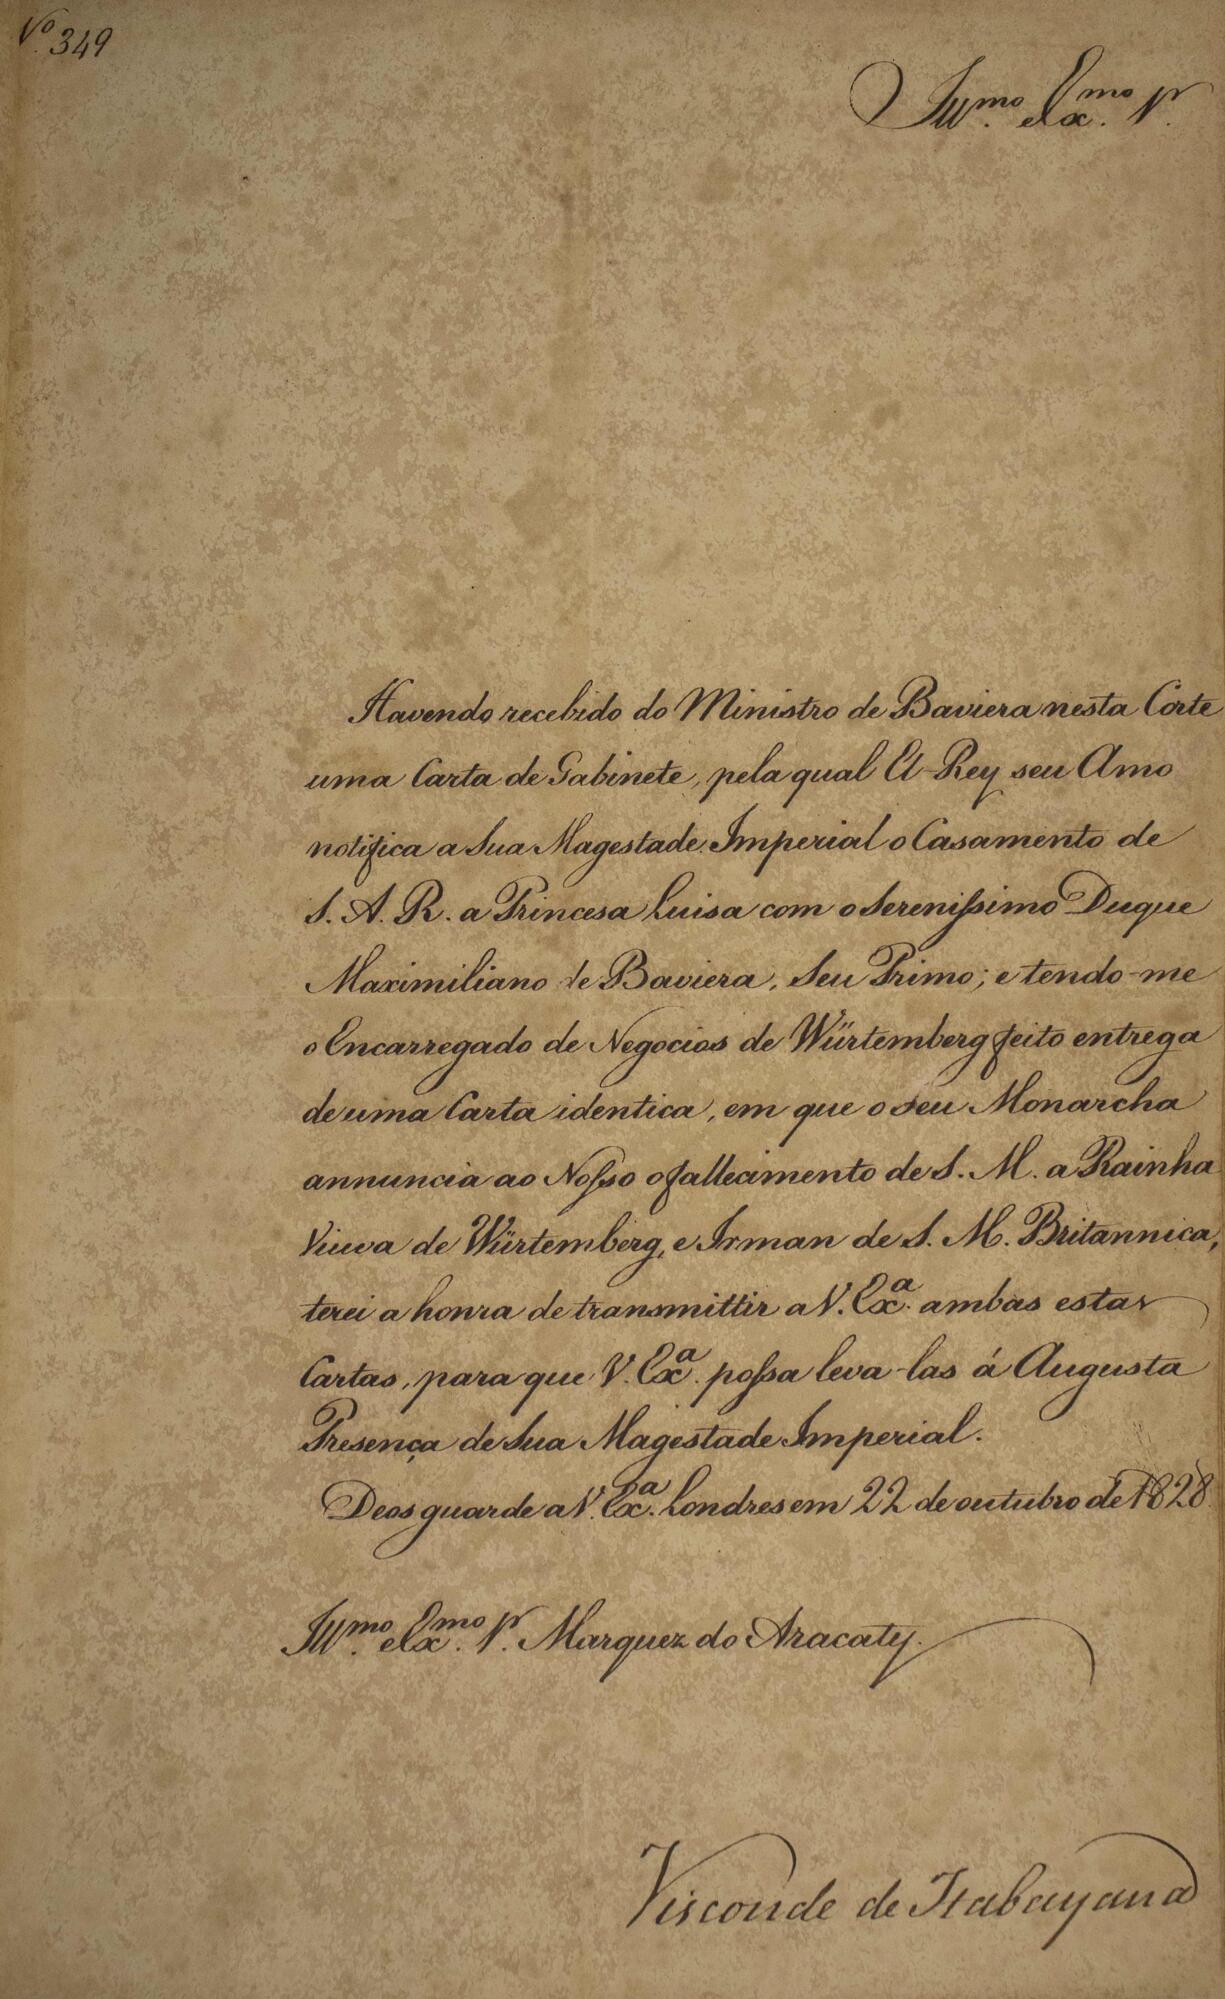 Nº 349
Illmo. e Exmo. Sr.
Havendo recebido do Ministro de Baviera nesta Corte
uma Carta de Gabinete, pela qual El-Rey seu Amo
notifica a Sua Magestade Imperial o Casamento de
S. A. R. a Princesa Luisa com o Sereníssimo Duque
Maximiliano de Baviera, Seu Primo; e tendo-me
o Encarregado de Negocios de Würtemberg feito entrega
de uma Carta identica, em que o seu Monarcha
annuncia ao Nosso o fallecimento de S. M. a Rainha
Viuva de Würtemberg, e Irman de S. M. Britannica,
terei a honra de transmittir a V. Exa. ambas estas
Cartas, para que V. Exa. possa leva-las á Augusta
Presença de Sua Magestade Imperial.
Deos guarde a V. Exa. Londres em 22 de outubro de 1828.
Illmo. e Exmo. Sr. Marquez do Aracaty.
Visconde de Itabayana